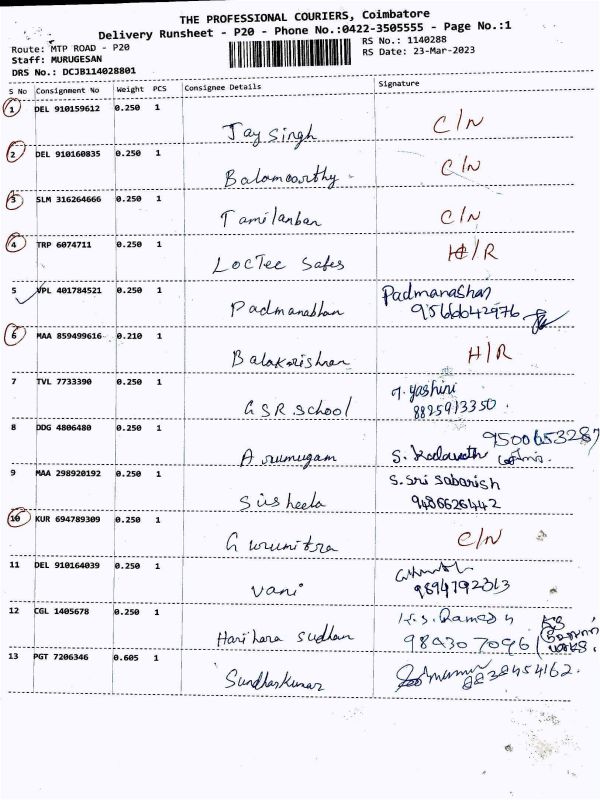 THE PROFESSIONAL COURIERS, Coimbatore
Delivery Runsheet - P20 - Phone No.:0422-3505555 - Page No.:1
Route: MTP ROAD - P20
RS No.: 1140288
Staff: MURUGESAN
RS Date: 23-Mar-2023
DRS No.: DCJB114028801
S No Consignment No Weight PCS Consignee Details Signature
1 DEL 910159612 0.250 1
Jay Singh C/N
2 DEL 910160835 0.250 1
Balamoorthy C/N
3 SLM 316264666 0.250 1
Tamilanban C/N
4 TRP 6074711 0.250 1
LocTec Safes H/R
5 VPL 401784521 0.250 1
Padmanabhan Padmanabhan
9566642976
6 MAA 859499616 0.210 1
Balakrishnan H/R
7 TVL 7733390 0.250 1
GSR School T. Yashini
8825913350.
8 DDG 4806480 0.250 1
9500653287
Arumugam S.
9 MAA 298920192 0.250 1
Susheela S. Sri Sabarish
9486626442
10 KUR 694789309 0.250 1
Gurumitra C/N
11 DEL 910164039 0.250 1
Vani 9894792313
12 CGL 1405678 0.250 1
Hari hara Sudhan K.S. Ramesh
989307 7096
13 PGT 7206346 0.605 1
Sundhar Kumar 8838454162.